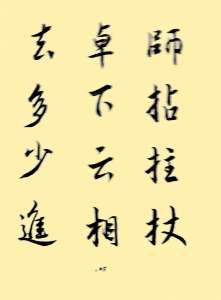 師拈拄杖
卓下云相
去多少進